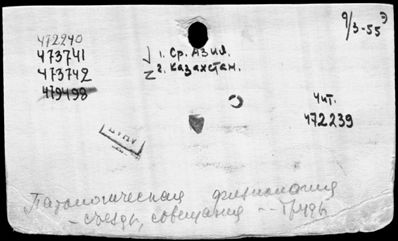 9/3-55 Э
472240
473741
473742
479498
1. Ср. Азия.
2. Казахстан.
Чит.
472239
Патологическая физиология
- съезды, совещания -- Труды